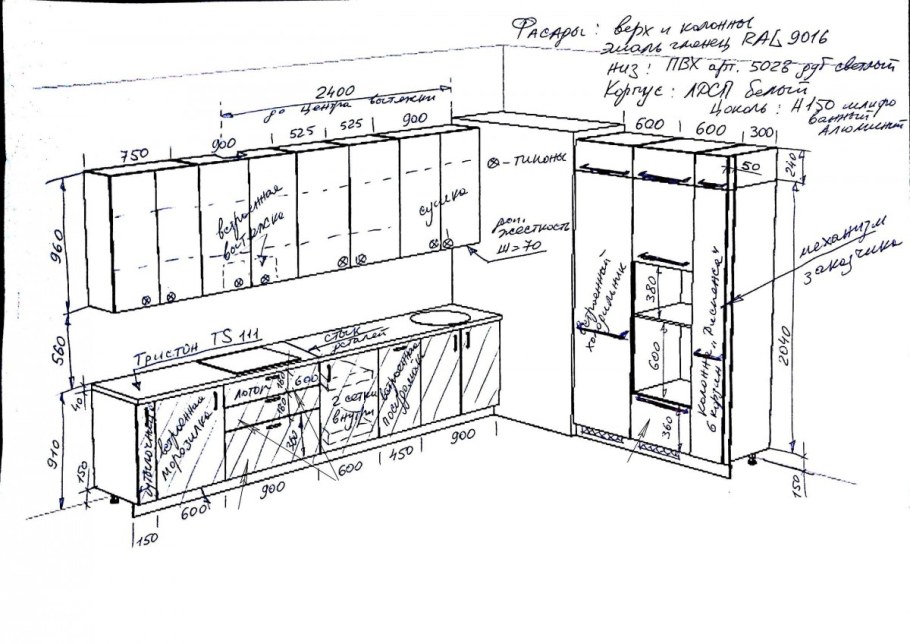 Фасады: верх и колонны
эмаль глянец RAL 9016
низ: ПВХ арт. 5028 дуб светлый
Корпус: ЛДСП белый
Цоколь: H150 шлифо
ванный
Алюминий
2400
до центра вытяжки
750
900
525
525
900
600
600
300
⊗-тиконы
50
240
встроенная
вытяжка
сушка
доп.
жесткость
Ш=70
960
560
механизм
заказчика
встроенный
холодильник
380
600
360
Колонна "Диспенса"
6 корзин
2040
150
Тристон TS 111
стык
деталей
40
910
150
бутылочница
встроенная
морозилка
лоток
180
180
360
600
2 сетки
внутри
встроенная
посудомойка
150
600
900
600
450
900